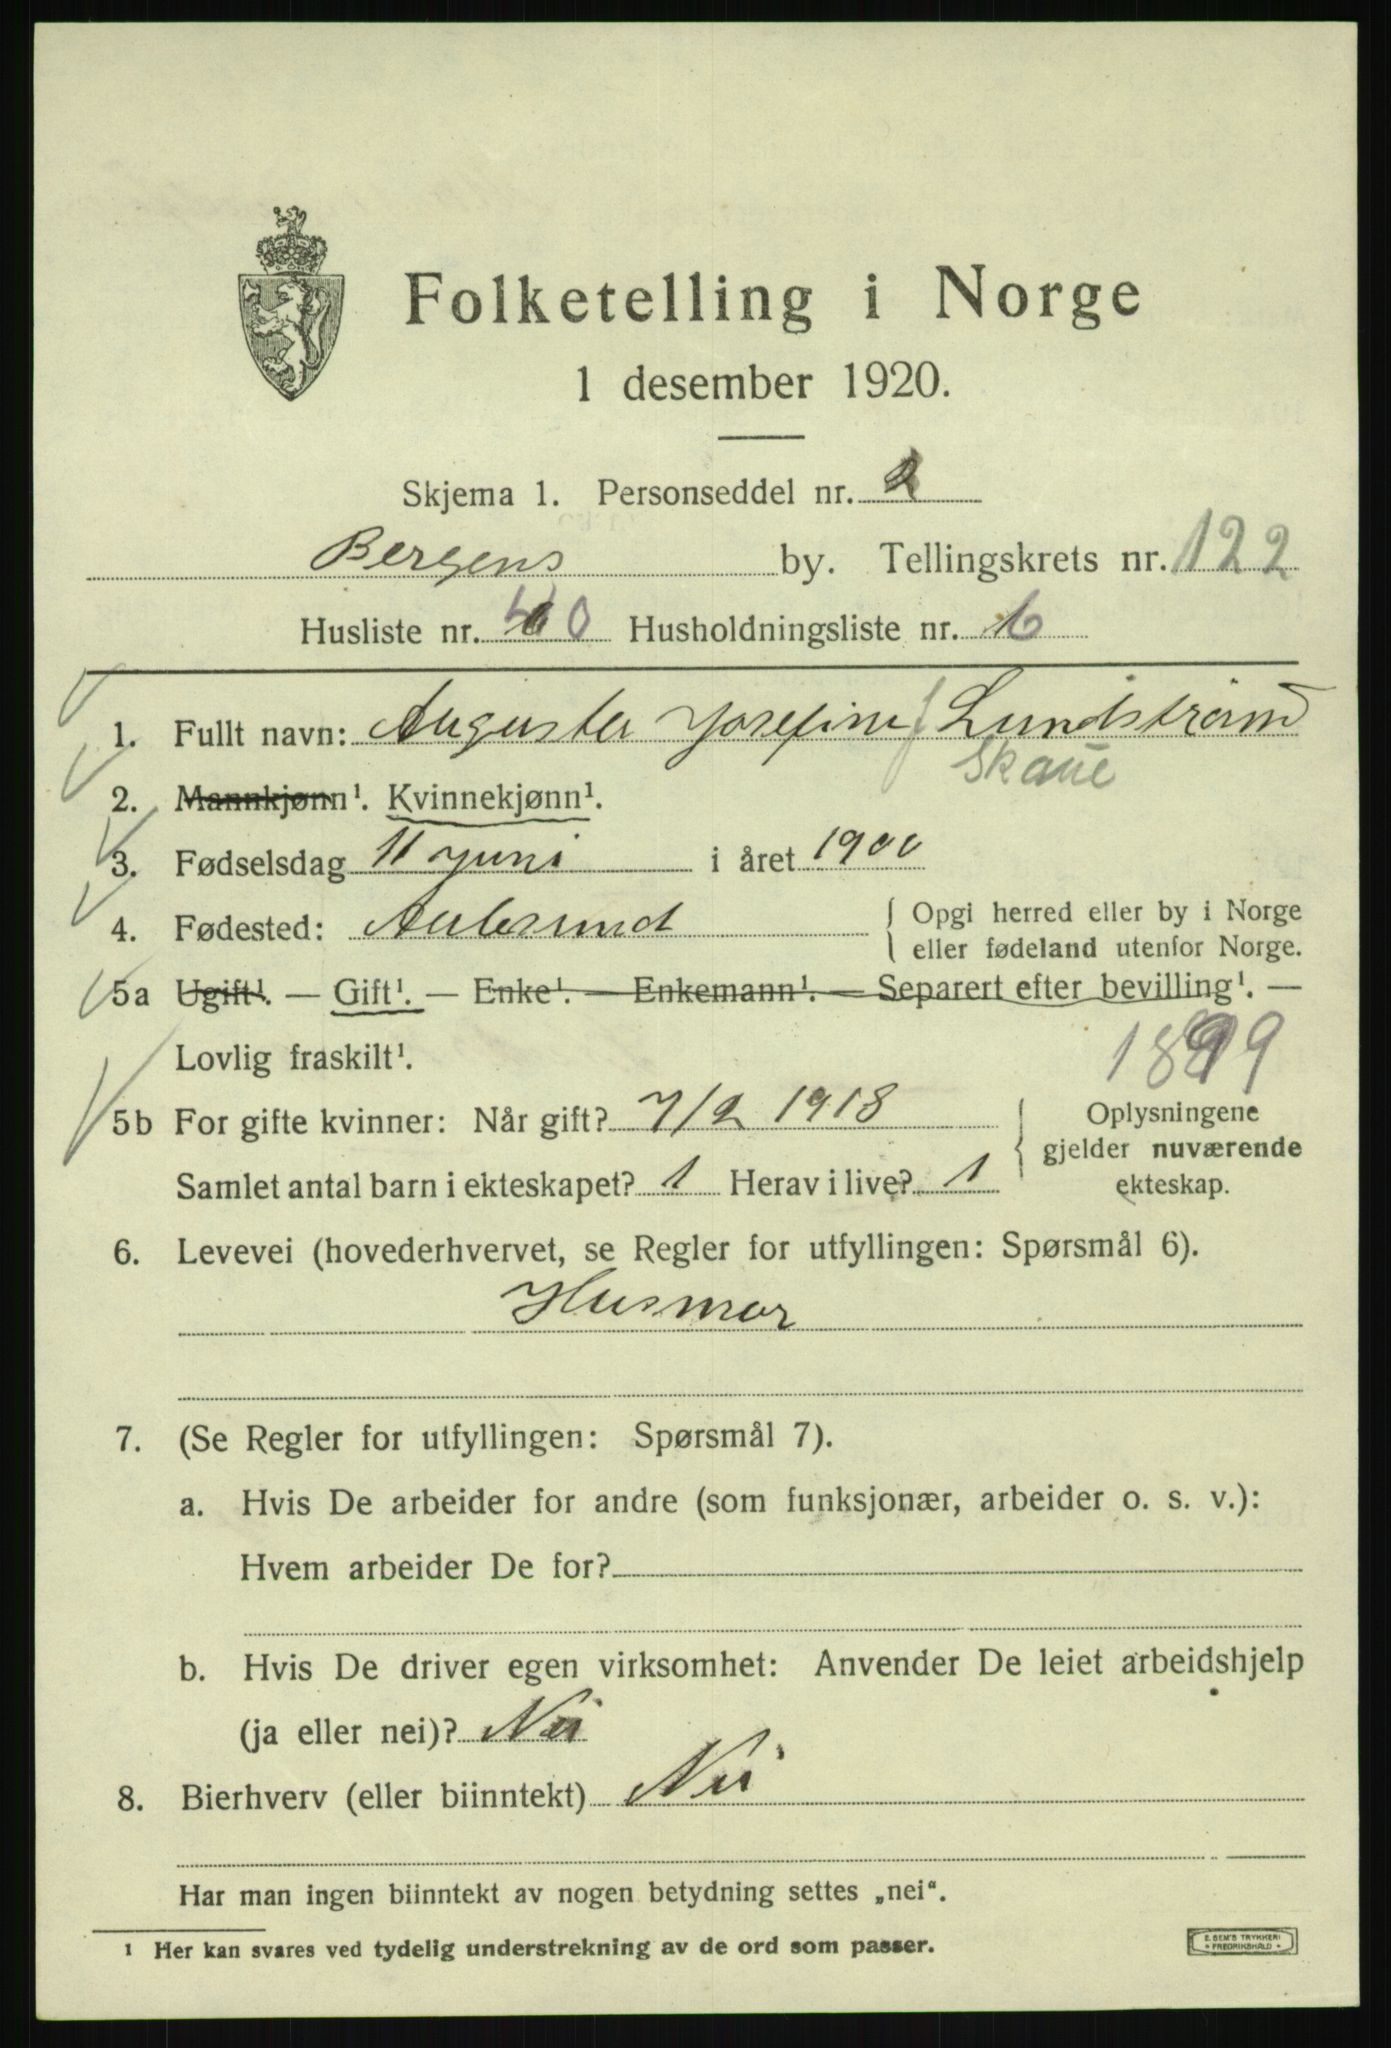 Folketelling i Norge
1 desember 1920.
Skjema 1. Personseddel nr. 2
Bergens by. Tellingskrets nr. 122
Husliste nr. 40 Husholdningsliste nr. 6
1. Fullt navn: Augusta Josefine f Lundström
Skaue
2. Mannkjønn¹. Kvinnekjønn¹.
3. Fødselsdag 11 juni i året 1900
4. Fødested: Aalesund { Opgi herred eller by i Norge
eller fødeland utenfor Norge.
5a Ugift¹. — Gift¹. — Enke¹. — Enkemann¹. — Separert efter bevilling¹. —
Lovlig fraskilt¹.
1899
5b For gifte kvinner: Når gift? 7/2 1918 { Oplysningene
gjelder nuværende
Samlet antal barn i ekteskapet? 1 Herav i live? 1 ekteskap.
6. Levevei (hovederhvervet, se Regler for utfyllingen: Spørsmål 6).
Husmor
7. (Se Regler for utfyllingen: Spørsmål 7).
a. Hvis De arbeider for andre (som funksjonær, arbeider o. s. v.):
Hvem arbeider De for?
b. Hvis De driver egen virksomhet: Anvender De leiet arbeidshjelp
(ja eller nei)? Nei
8. Bierhverv (eller biinntekt) Nei
Har man ingen biinntekt av nogen betydning settes „nei“.
¹ Her kan svares ved tydelig understrekning av de ord som passer.
E. SEM'S TRYKKERI
• FREDRIKSHALD •